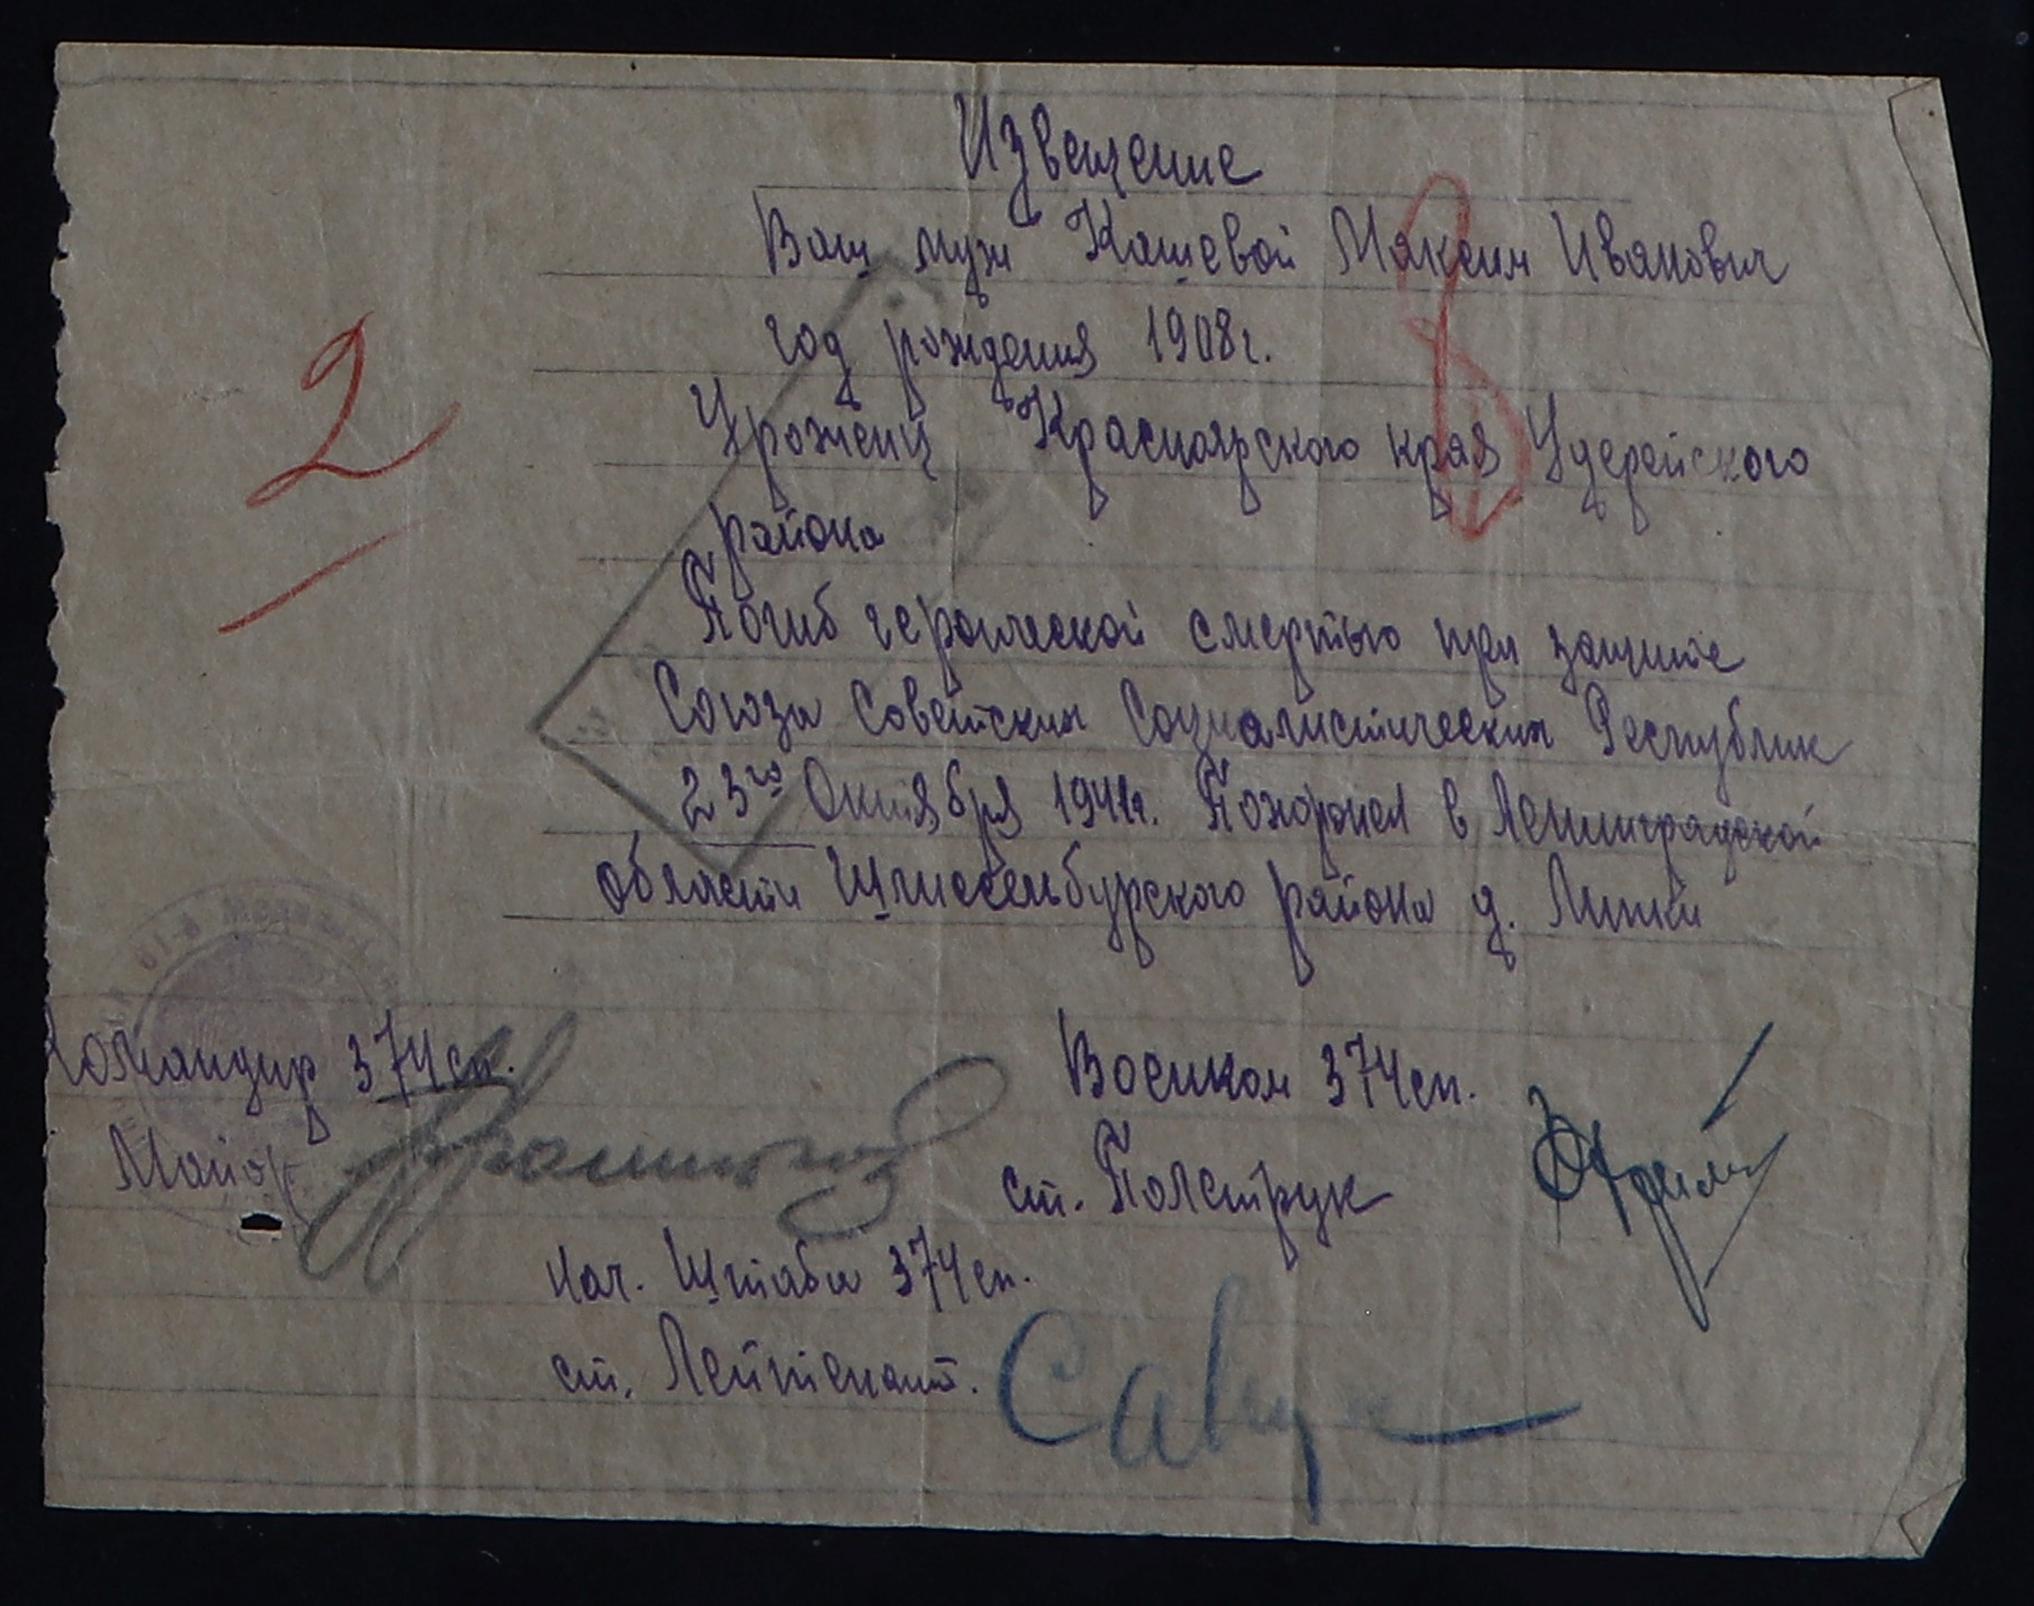 Извещение
Ваш муж Кашевой Максим Иванович
год рождения 1908г.
Уроженец Красноярского края Удерейского
района
Погиб героической смертью при защите
Союза Советских Социалистических Республик
23го Октября 1941г. Похоржен в Ленинградской
области Шлиссельбурского района д. Липки
2
Командир 374 сп.
Майор
Военком 374 сп.
ст. Политрук
Нач. Штаба 374 сп.
ст. Лейтенант.